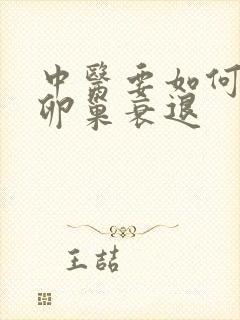 中醫要如何
卵巢衰退
王喆